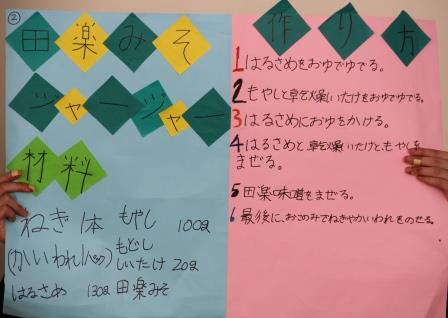 ②
田楽みそ
ジャージャー
材料
ねぎ1本 もやし 100g
(かいわれ1パック) もどし
しいたけ 20g
はるさめ 130g 田楽みそ
作り方
1 はるさめをおゆでゆでる。
2 もやしと乾燥しいたけをおゆでゆでる。
3 はるさめにおゆをかける。
4 はるさめと乾燥しいたけと、もやしを
まぜる。
5 田楽味噌をまぜる。
6 最後に、おこのみでねぎやかいわれをのせる。